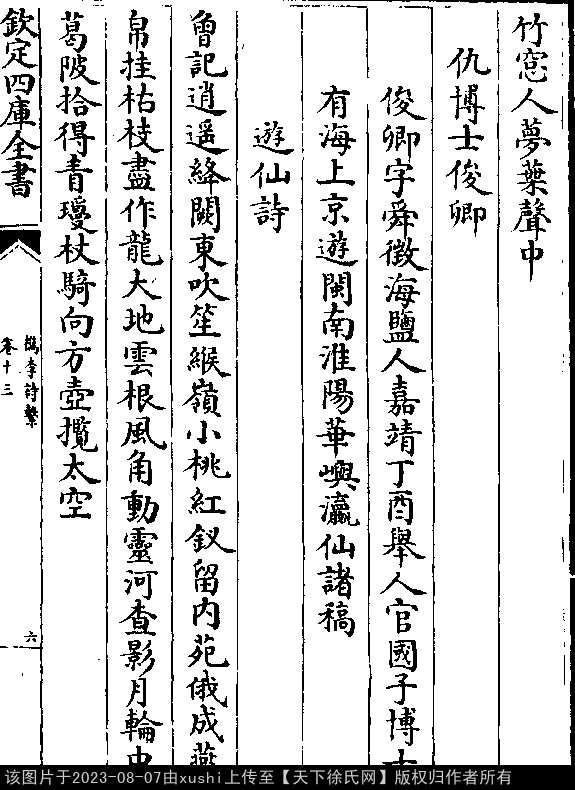 竹窓人夢葉聲中
仇博士俊卿
俊卿字舜徴海鹽人嘉靖丁酉舉人官國子博士
有海上京遊閩南淮陽華嶼瀛仙諸稿
遊仙詩
曾記逍遥絳闕東吹笙緱嶺小桃紅釵留内苑俄成燕
帛挂枯枝盡作龍大地雲根風角動靈河查影月輪中
葛陂拾得青瓊杖騎向方壺攬太空
欽定四庫全書
檇李詩繫
卷十三
六
该图片于2023-08-07由xushi上传至【天下徐氏网】版权归作者所有